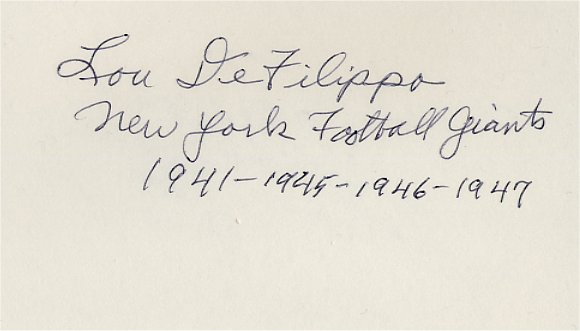 Lou DeFilippo
New York Football Giants
1941-1945-1946-1947